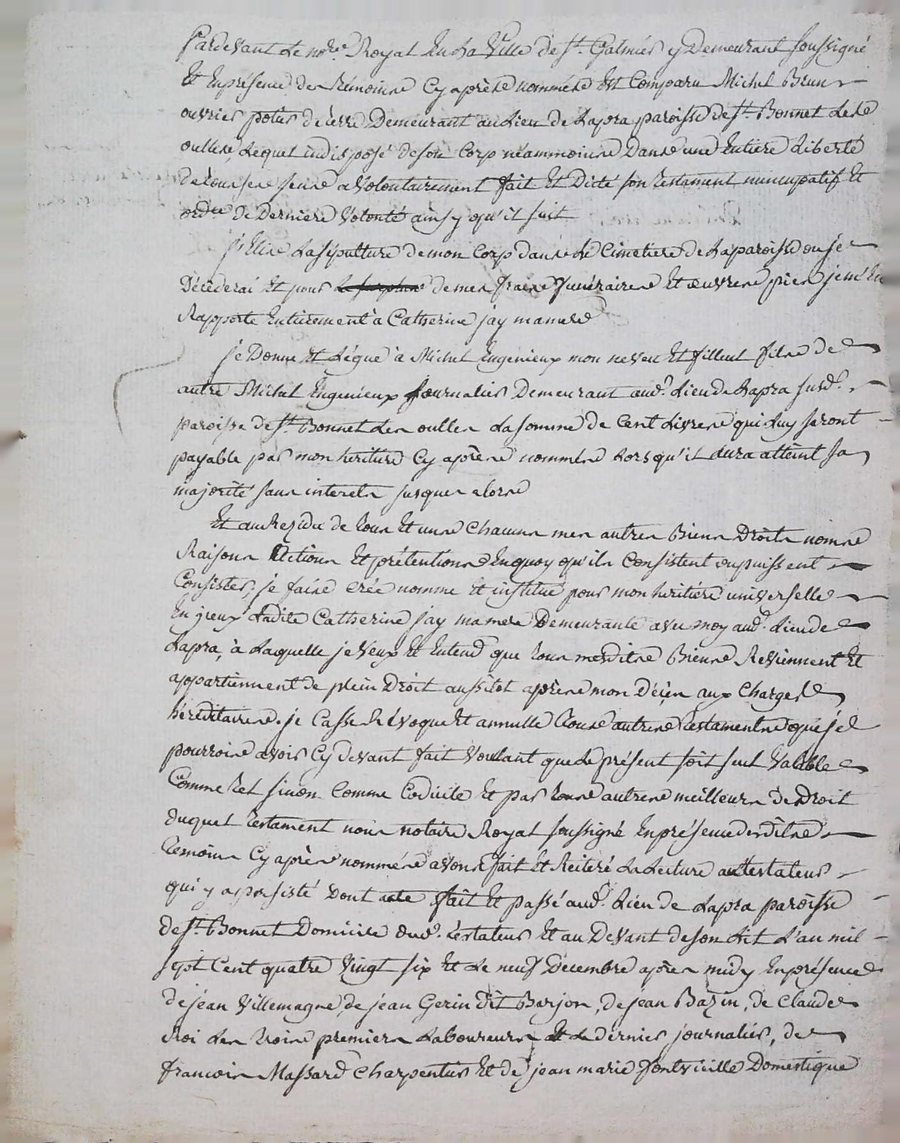 Pardevant Le no.re Royal En La Ville de St. Galmier y Demeurant soussigné
Et En présence des Témoins Cy après nommés Est Comparu Michel Brun
ouvrier potier de terre Demeurant au Lieu de Lapra paroisse de St. Bonnet Les
oulles, Lequel indisposé de son Corp néammoins Dans une Entière Liberté
de tous ses sens a Volontairement fait Et Dicté son testament nuncupatif Et
ordre de Derniere Volonté ainsy qu'il suit
j'Elis La sépulture de mon Corp dans Le Cimetiere de La paroisse ou je
Décéderai Et pour de mes fraix funéraires Et œuvres pies je m'En
Rapporte Entièrement à Catherine jay ma mere
je Donne Et Lègue à Michel Engenieux mon neveu Et filleul fils de
autre Michel Engenieux journalier Demeurant aud. Lieu de Lapra susd.
paroisse de St. Bonnet Les oulles La somme de Cent Livres qui Luy seront
payable par mon heritiere Cy après nommée Lorsqu'il aura atteint sa
majorité sans interets jusques alors
Et au Rezidu de tous Et uns Chacuns mes autres Biens Droits noms
Raisons Actions Et prétentions En quoy qu'ils Consistent ou puissent
Consister, je fais crée nomme Et institue pour mon heritière universelle
Ladite Catherine jay ma mere Demeurante avec moy aud. Lieu de
Lapra, à Laquelle je Veux Et Entend que tous mesdits Biens Reviennent Et
appartiennent de plein Droit aussitot après mon Décès aux Charges
héréditaires. je Casse Révoque Et annulle tous autres testaments que je
pourrois avoir Cy devant fait Voulant que Le présent soit seul Valable
Comme tel sinon Comme Codicile Et par tous autres meilleurs de Droit
duquel testament nous notaire Royal soussigné En présence desdits
témoins Cy après nommés avons fait Et Reiteré La Lecture au testateur
qui y a persisté Dont acte fait Et passé aud. Lieu de Lapra paroisse
de St. Bonnet Domicile dud. testateur Et au Devant de son Lit L'an mil
sept Cent quatre Vingt six Et Le neuf Décembre après midy En présence
de jean Villemagne, de jean Gerin Dit Barjon, de jean Bazin, de Claude
Roi Les trois premiers Laboureurs Et Le dernier journalier, de
francois Massard Charpentier Et de jean marie fontvieille Domestique